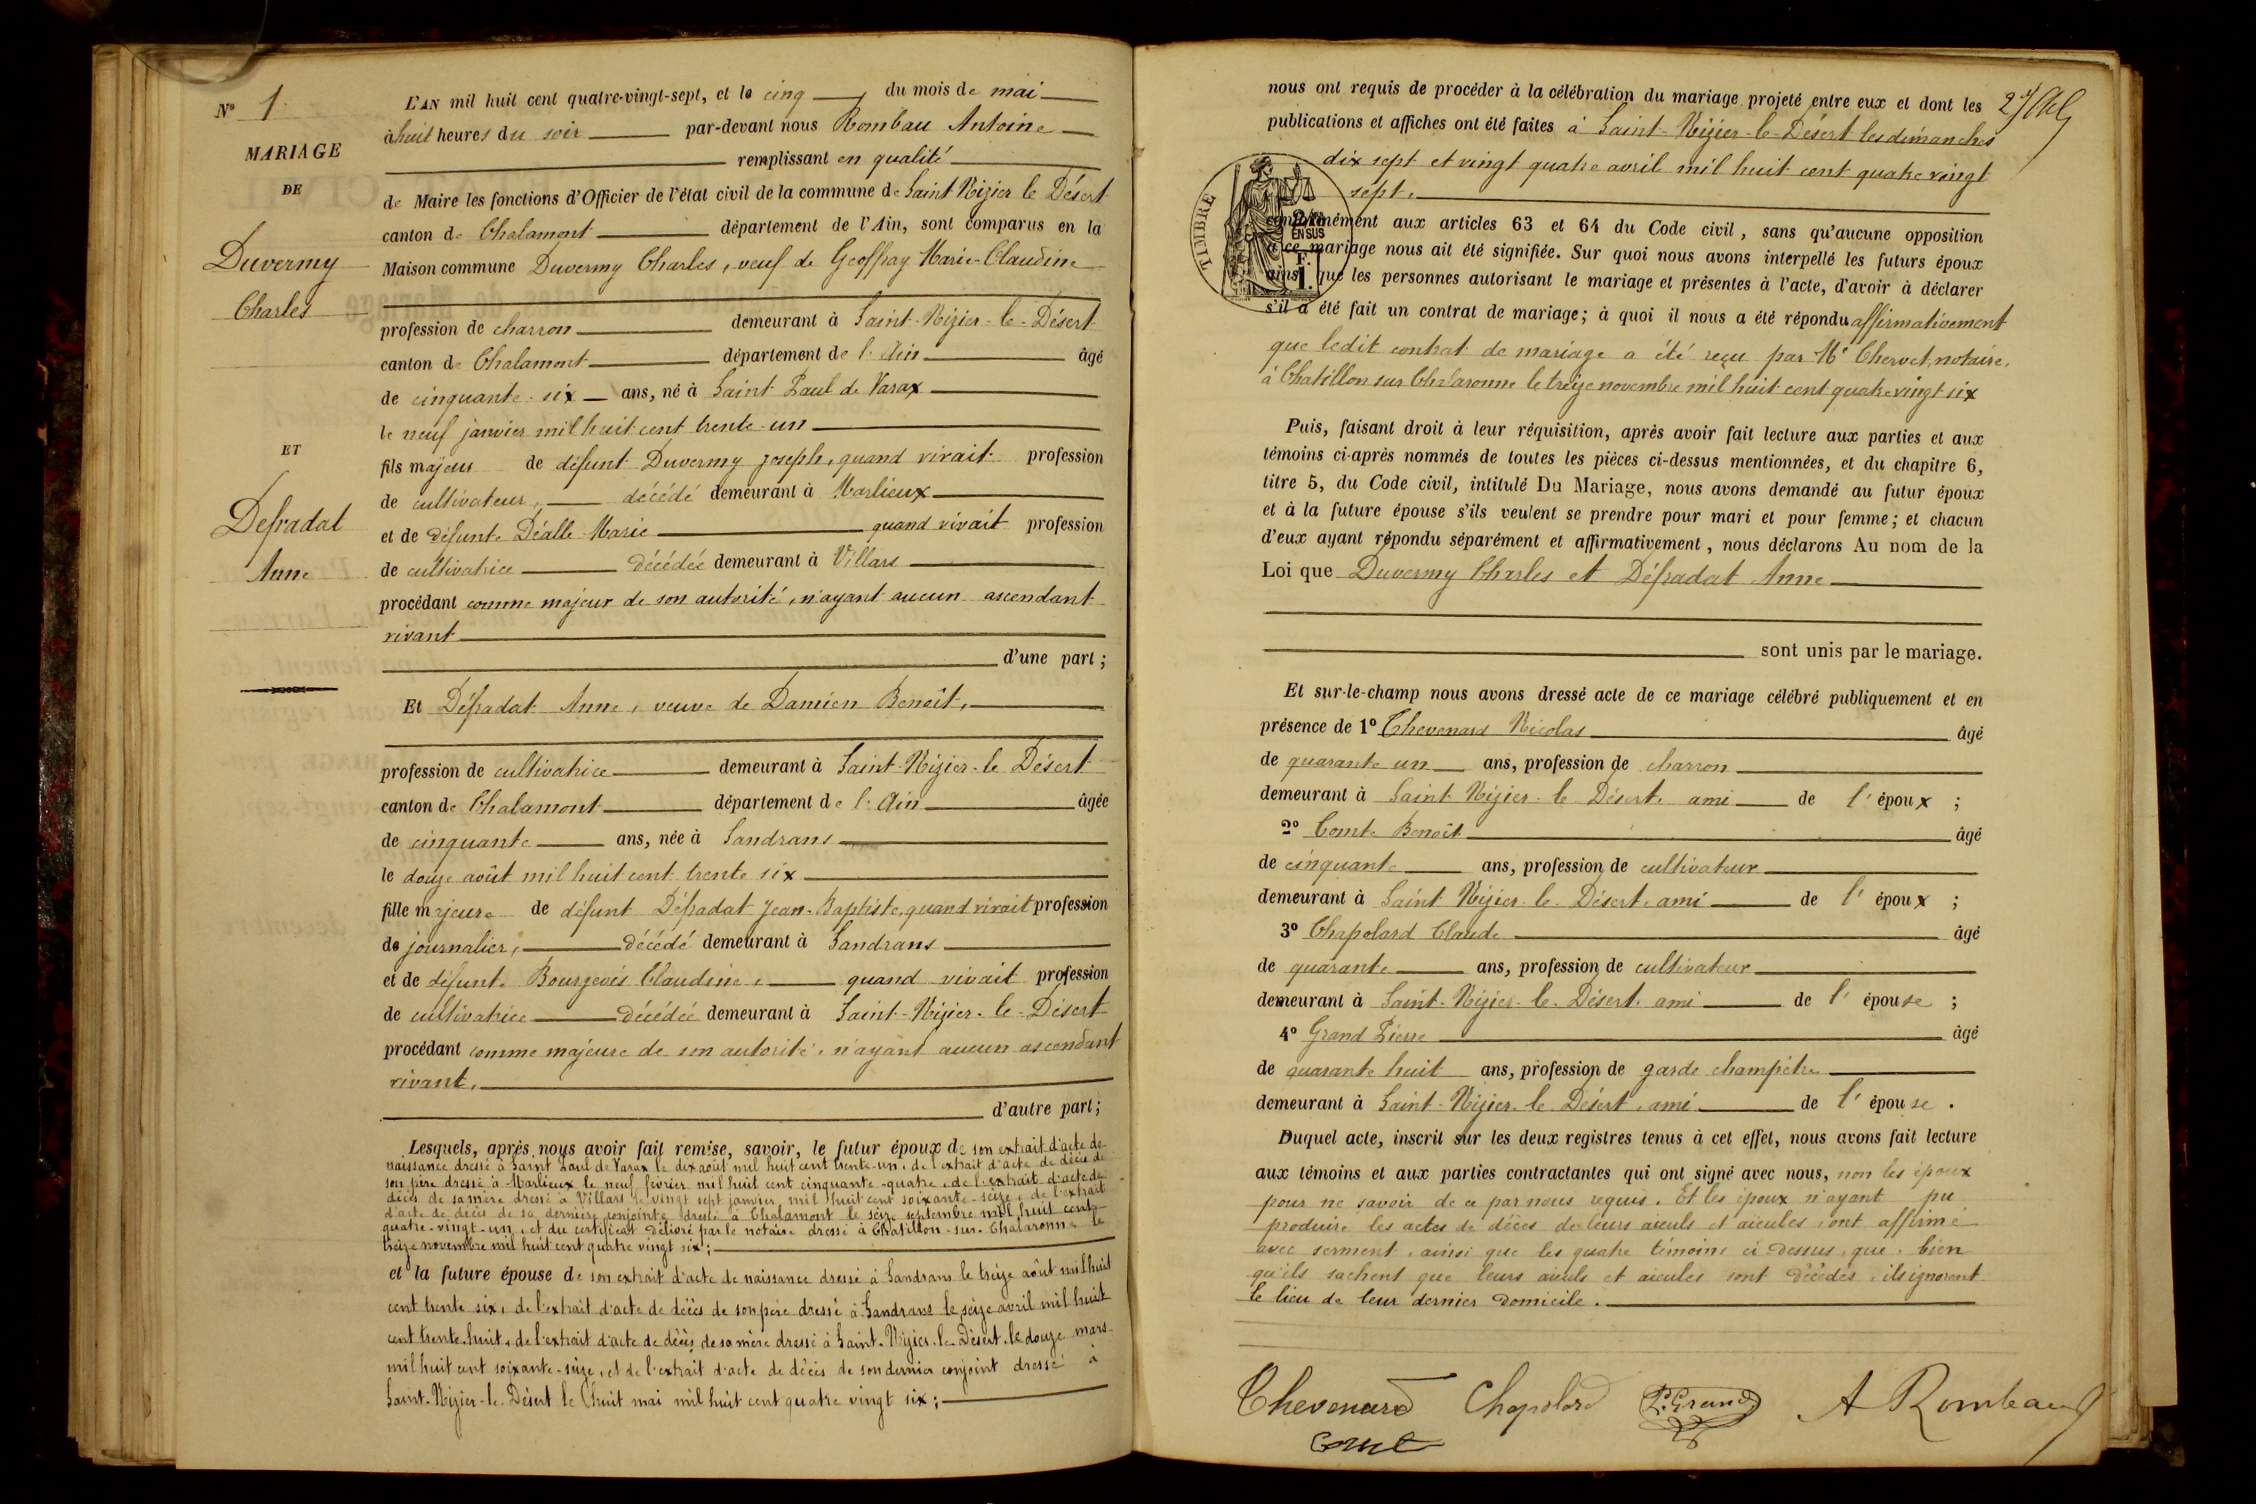 N° 1
MARIAGE
DE
Duvermy
Charles
ET
Defradat
Anne
L'AN mil huit cent quatre-vingt-sept, et le cinq du mois de mai
à huit heures du soir par-devant nous Rombau Antoine
remplissant en qualité
de Maire les fonctions d'Officier de l'état civil de la commune de Saint Nizier le Désert
canton de Chalamont département de l'Ain, sont comparus en la
Maison commune Duvermy Charles, veuf de Geoffray Marie-Claudine
profession de charron demeurant à Saint-Nizier-le-Désert
canton de Chalamont département de l'Ain âgé
de cinquante-six ans, né à Saint Paul de Varax
le neuf janvier mil huit cent trente-un
fils majeur de défunt Duvermy Joseph, quand vivait profession
de cultivateur, décédé demeurant à Marlieux
et de défunte Déalle Marie quand vivait profession
de cultivatrice décédée demeurant à Villars
procédant comme majeur de son autorité, n'ayant aucun ascendant
vivant
d'une part;
Et Défradat Anne, veuve de Damien Benoît,
profession de cultivatrice demeurant à Saint-Nizier-le Désert
canton de Chalamont département de l'Ain âgée
de cinquante ans, née à Sandrans
le douze août mil huit cent trente six
fille majeure de défunt Défradat Jean-Baptiste, quand vivait profession
de journalier, décédé demeurant à Sandrans
et de défunte Bourgeois Claudine, quand vivait profession
de cultivatrice décédée demeurant à Saint-Nizier-le-Désert
procédant comme majeure de son autorité, n'ayant aucun ascendant
vivant,
d'autre part;
Lesquels, après nous avoir fait remise, savoir, le futur époux de son extrait d'acte de
naissance dressé à Saint Paul de Varax le dix août mil huit cent trente-un, de l'extrait d'acte de décès de
son père dressé à Marlieux le neuf février mil huit cent cinquante-quatre, de l'extrait d'acte de
décès de sa mère dressé à Villars le vingt sept janvier mil huit cent soixante-seize, de l'extrait
d'acte de décès de sa dernière conjointe dressé à Chalamont le seize septembre mil huit cent
quatre-vingt-un, et du certificat délivré par le notaire dressé à Chatillon-sur-Chalaronne le
treize novembre mil huit cent quatre vingt six;
et la future épouse de son extrait d'acte de naissance dressé à Sandrans le treize août mil huit
cent trente six, de l'extrait d'acte de décès de son père dressé à Sandrans le seize avril mil huit
cent trente-huit, de l'extrait d'acte de décès de sa mère dressé à Saint-Nizier-le-Désert le douze mars
mil huit cent soixante-seize, et de l'extrait d'acte de décès de son dernier conjoint dressé à
Saint-Nizier-le-Désert le huit mai mil huit cent quatre vingt six;
nous ont requis de procéder à la célébration du mariage projeté entre eux et dont les
publications et affiches ont été faites à Saint-Nizier-le-Désert les dimanches
dix sept et vingt quatre avril mil huit cent quatre vingt
sept,
TIMBRE
2/10
EN SUS
F.
1.
conformément aux articles 63 et 64 du Code civil, sans qu'aucune opposition
à ce mariage nous ait été signifiée. Sur quoi nous avons interpellé les futurs époux
ainsi que les personnes autorisant le mariage et présentes à l'acte, d'avoir à déclarer
s'il a été fait un contrat de mariage; à quoi il nous a été répondu affirmativement
que ledit contrat de mariage a été reçu par Me Chervet, notaire,
à Chatillon sur Chalaronne le treize novembre mil huit cent quatre vingt six
Puis, faisant droit à leur réquisition, après avoir fait lecture aux parties et aux
témoins ci-après nommés de toutes les pièces ci-dessus mentionnées, et du chapitre 6,
titre 5, du Code civil, intitulé Du Mariage, nous avons demandé au futur époux
et à la future épouse s'ils veulent se prendre pour mari et pour femme; et chacun
d'eux ayant répondu séparément et affirmativement, nous déclarons Au nom de la
Loi que Duvermy Charles et Défradat Anne
sont unis par le mariage.
Et sur-le-champ nous avons dressé acte de ce mariage célébré publiquement et en
présence de 1° Chevenard Nicolas âgé
de quarante un ans, profession de charron
demeurant à Saint Nizier-le Désert, ami de l'époux ;
2° Comte Benoît âgé
de cinquante ans, profession de cultivateur
demeurant à Saint Nizier-le-Désert, ami de l'époux ;
3° Chapolard Claude âgé
de quarante ans, profession de cultivateur
demeurant à Saint-Nizier-le-Désert, ami de l'épouse ;
4° Grand Pierre âgé
de quarante huit ans, profession de garde champêtre
demeurant à Saint-Nizier-le-Désert, ami de l'épouse.
Duquel acte, inscrit sur les deux registres tenus à cet effet, nous avons fait lecture
aux témoins et aux parties contractantes qui ont signé avec nous, non les époux
pour ne savoir de ce par nous requis. Et les époux n'ayant pu
produire les actes de décès de leurs aïeuls et aïeules, ont affirmé
avec serment, ainsi que les quatre témoins ci-dessus, que, bien
qu'ils sachent que leurs aïeuls et aïeules sont décédés, ils ignorent
le lieu de leur dernier domicile.
Chevenard Chapolard P. Grand A Rombau
Comte